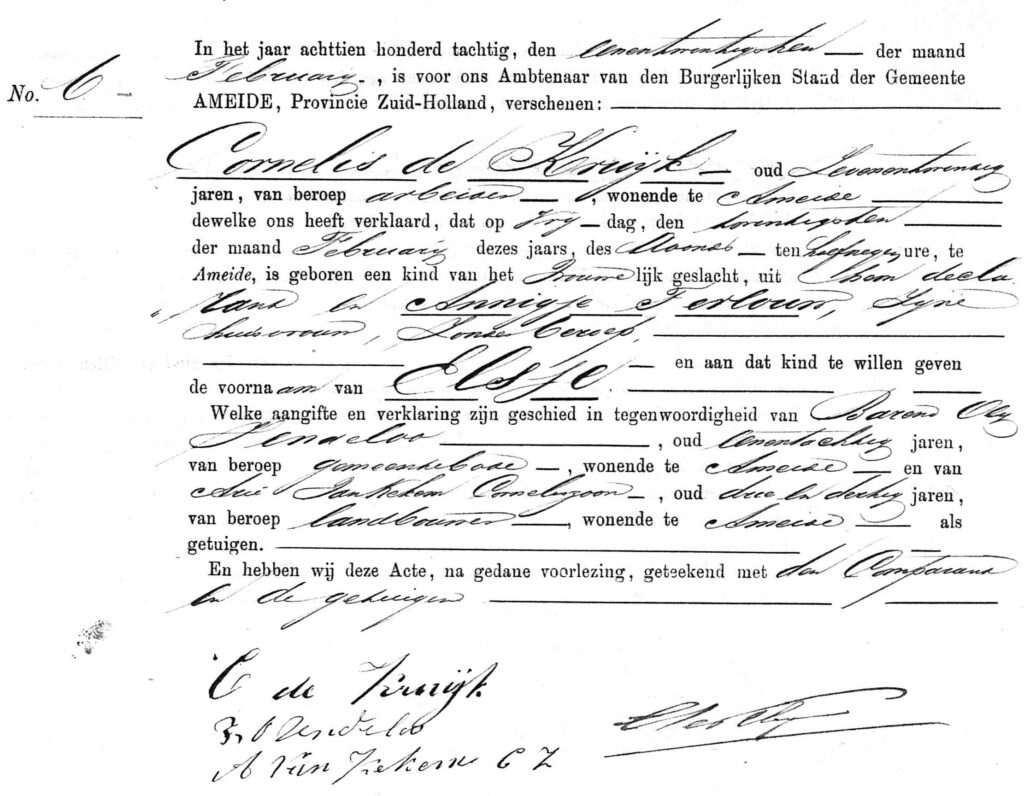 In het jaar achttien honderd tachtig, den eenentwintigsten der maand
No. 6 February, is voor ons Ambtenaar van den Burgerlijken Stand der Gemeente
AMEIDE, Provincie Zuid-Holland, verschenen:
Cornelis de Kruijk oud zevenentwintig
jaren, van beroep arbeider, wonende te Ameide
dewelke ons heeft verklaard, dat op Vrydag, den twintigsten
der maand February dezes jaars, des ten ure, te
Ameide, is geboren een kind van het Vrouwelijk geslacht, uit hem decla
rant en Annigje Terlouw, zyne
huisvrouw, zonder beroep,
en aan dat kind te willen geven
de voornaam van Elsje.
Welke aangifte en verklaring zijn geschied in tegenwoordigheid van Barend
, oud eenentachtig jaren,
van beroep gemeentebode, wonende te Ameide en van
Arie van Kekem Corneliszoon, oud drie en dertig jaren,
van beroep landbouwer, wonende te Ameide als
getuigen.
En hebben wij deze Acte, na gedane voorlezing, geteekend met den Comparant
en de getuigen
C de Kruijk
A Van Kekem C Z